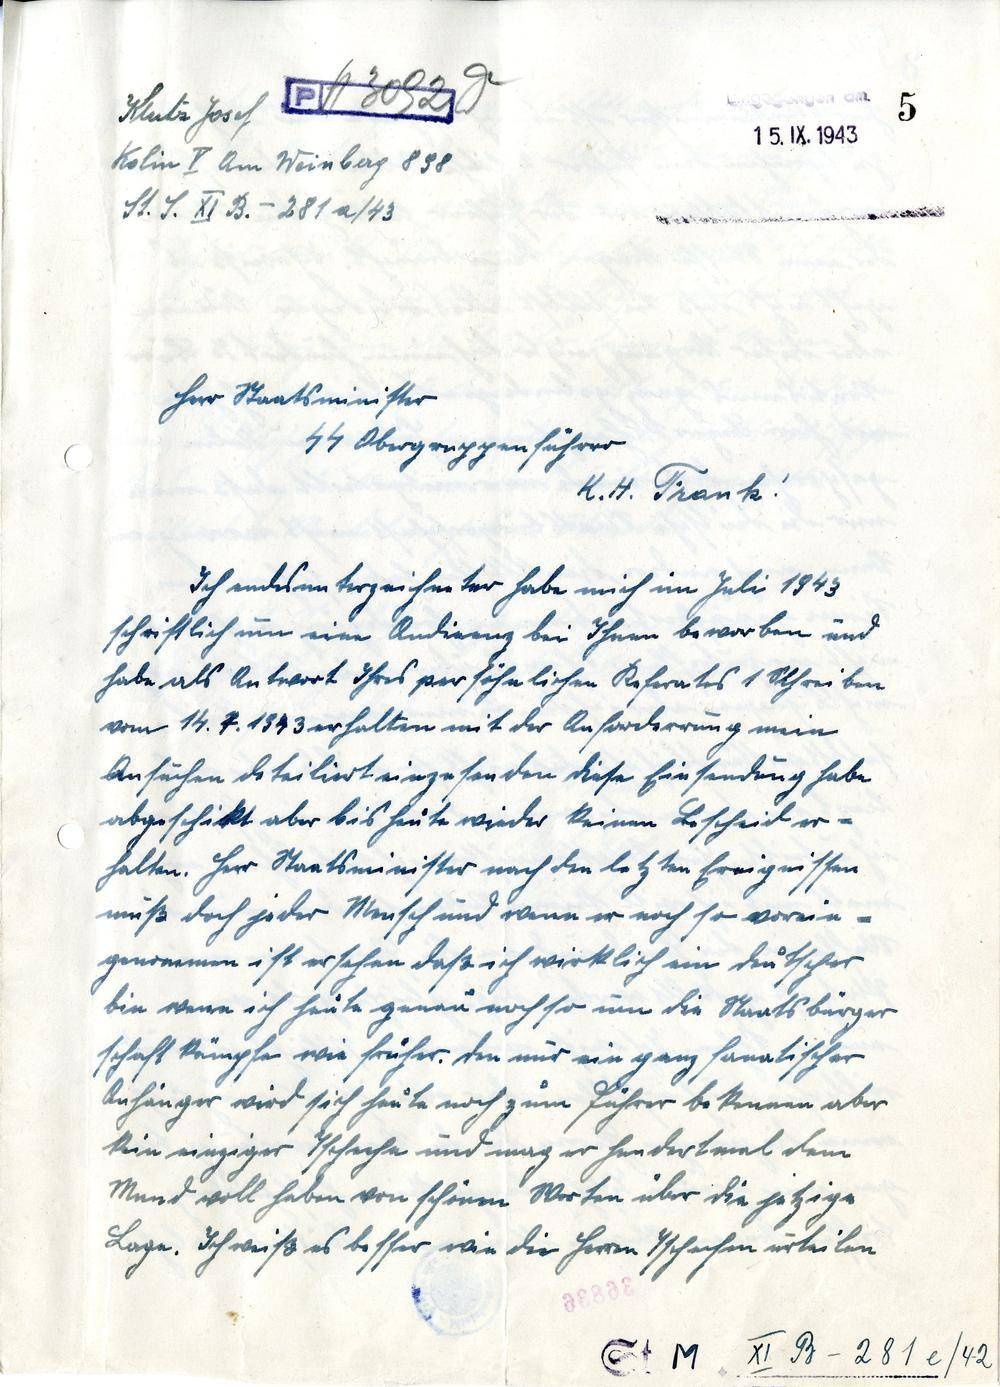 Klutz Josef
P 3092
Eingegangen am
15. IX. 1943
5
Kolin V Am Weinberg 898
St. S. XI B. - 281 a/43
Herr Staatsminister
SS Obergruppenführer
K.H. Frank!
Ich endesunterzeichneter habe mich im Juli 1943
schriftlich um eine Audienz bei Ihnen beworben und
habe als Antwort Ihres persöhnlichen Referates 1 Schreiben
vom 14. 7. 1943 erhalten mit der Anforderung mein
Ansuchen deteiliert einzusenden diese Einsendung habe
abgeschikt aber bis heute wieder keinen Bescheid er=
halten. Herr Staatsminister nach den letzten Ereignissen
muß doch jeder Mensch und wenn er noch so vorein=
genommen ist ersehen daß ich wirklich ein deutscher
bin wenn ich heute genau noch so um die Staatsbürger
schaft kämpfe wie früher. den nur ein ganz fanatischer
Anhänger wird sich heute noch zum Führer bekennen aber
kein einziger Tscheche und mag er hundertmal dem
Mund voll haben von schönen Worten über die jetzige
Lage. Ich weiß es besser wie die Herren Tschechen urteilen
36836
St M XI B - 281 e/42